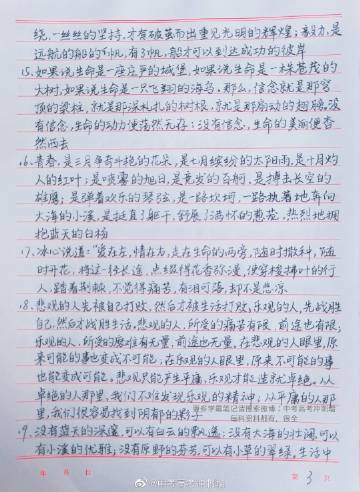 绕，一丝丝的坚持，才有破茧而出重见光明的辉煌；毅力，是
远航的船的帆，有了帆，船才可以到达成功的彼岸
15、如果说生命是一座庄严的城堡，如果说生命是一株苍茂的
大树，如果说生命是一只飞翔的海鸟。那么，信念就是那穹
顶的梁柱，就是那深扎的树根，就是那扇动的翅膀。没
有信念，生命的动力便荡然无存；没有信念，生命的美丽便杳
然西去
16、青春，是三月争奇斗艳的花朵，是七月缤纷的太阳雨，是十月灼
人的红叶；是喷雾的旭日，是竞发的百舸，是搏击长空的
雄鹰；是弹着欢乐的琴弦，是一路坎坷，一路执着地奔向
大海的小溪，是挺直了躯干，舒展了满怀的葱茏，热烈地拥
抱蓝天的白杨
17、冰心说道：“爱在左，情在右，走在生命的两旁，随时撒种，随
时开花，将这一径长途，点缀得花香弥漫，使穿梭拂叶的行
人，踏着荆棘，不觉得痛苦，有泪可落，却不是悲凉
18、悲观的人先被自己打败，然后才被生活打败；乐观的人，先战胜
自己，然后才战胜生活。悲观的人，所受的痛苦有限，前途也有限；
乐观的人，所受的磨难有无量，前途也无量。在悲观的人眼里，原
来可能的事也变成不可能；在乐观的人眼里，原来不可能的事
也能变成可能。悲观只能产生平庸，乐观才能造就卓绝。从
卓绝的人那里，我们不难发现乐观的精神；从平庸的人那
里，我们很容易找到阴郁的影子
19、没有蓝天的深邃，可以有白云的飘逸；没有大海的壮阔，可以
有小溪的优雅；没有原野的芬芳，可以有小草的翠绿。生活中
年 月 日
第 3 页
@中考高考冲刺酱